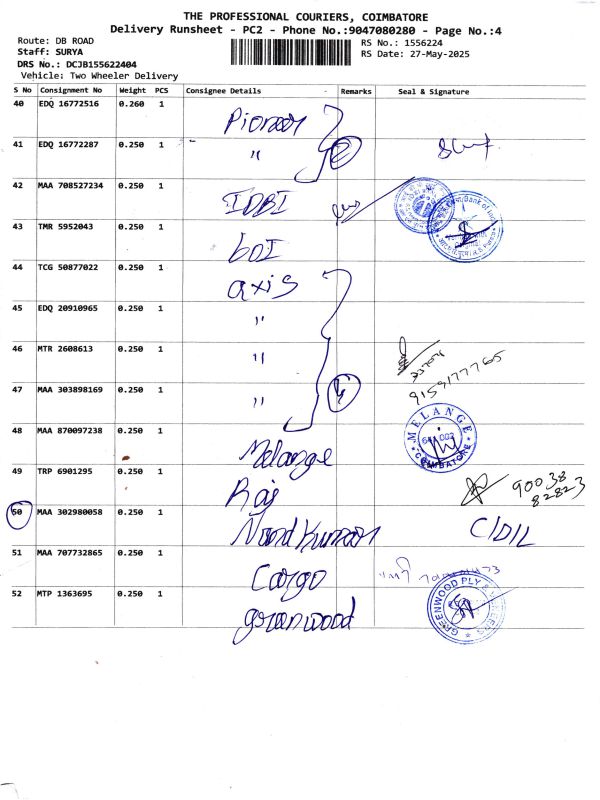 THE PROFESSIONAL COURIERS, COIMBATORE
Delivery Runsheet - PC2 - Phone No.:9047080280 - Page No.:4
Route: DB ROAD
Staff: SURYA
DRS No.: DCJB155622404
Vehicle: Two Wheeler Delivery
RS No.: 1556224
RS Date: 27-May-2025
S No Consignment No Weight PCS Consignee Details Remarks Seal & Signature
40 EDQ 16772516 0.260 1 Pioneer
41 EDQ 16772287 0.250 1 "
2
42 MAA 708527234 0.250 1 IDBI
43 TMR 5952043 0.250 1 BOI
44 TCG 50877022 0.250 1 axis
45 EDQ 20910965 0.250 1 "
46 MTR 2608613 0.250 1 "
9159177765
47 MAA 303898169 0.250 1 "
4
48 MAA 870097238 0.250 1 Melange
MELANGE
COIMBATORE
49 TRP 6901295 0.250 1 Raj
90038
82823
50 MAA 302980058 0.250 1 Nandkumar C/DIL
51 MAA 707732865 0.250 1 Cargo
52 MTP 1363695 0.250 1 greenwood
GREENWOOD PLY &